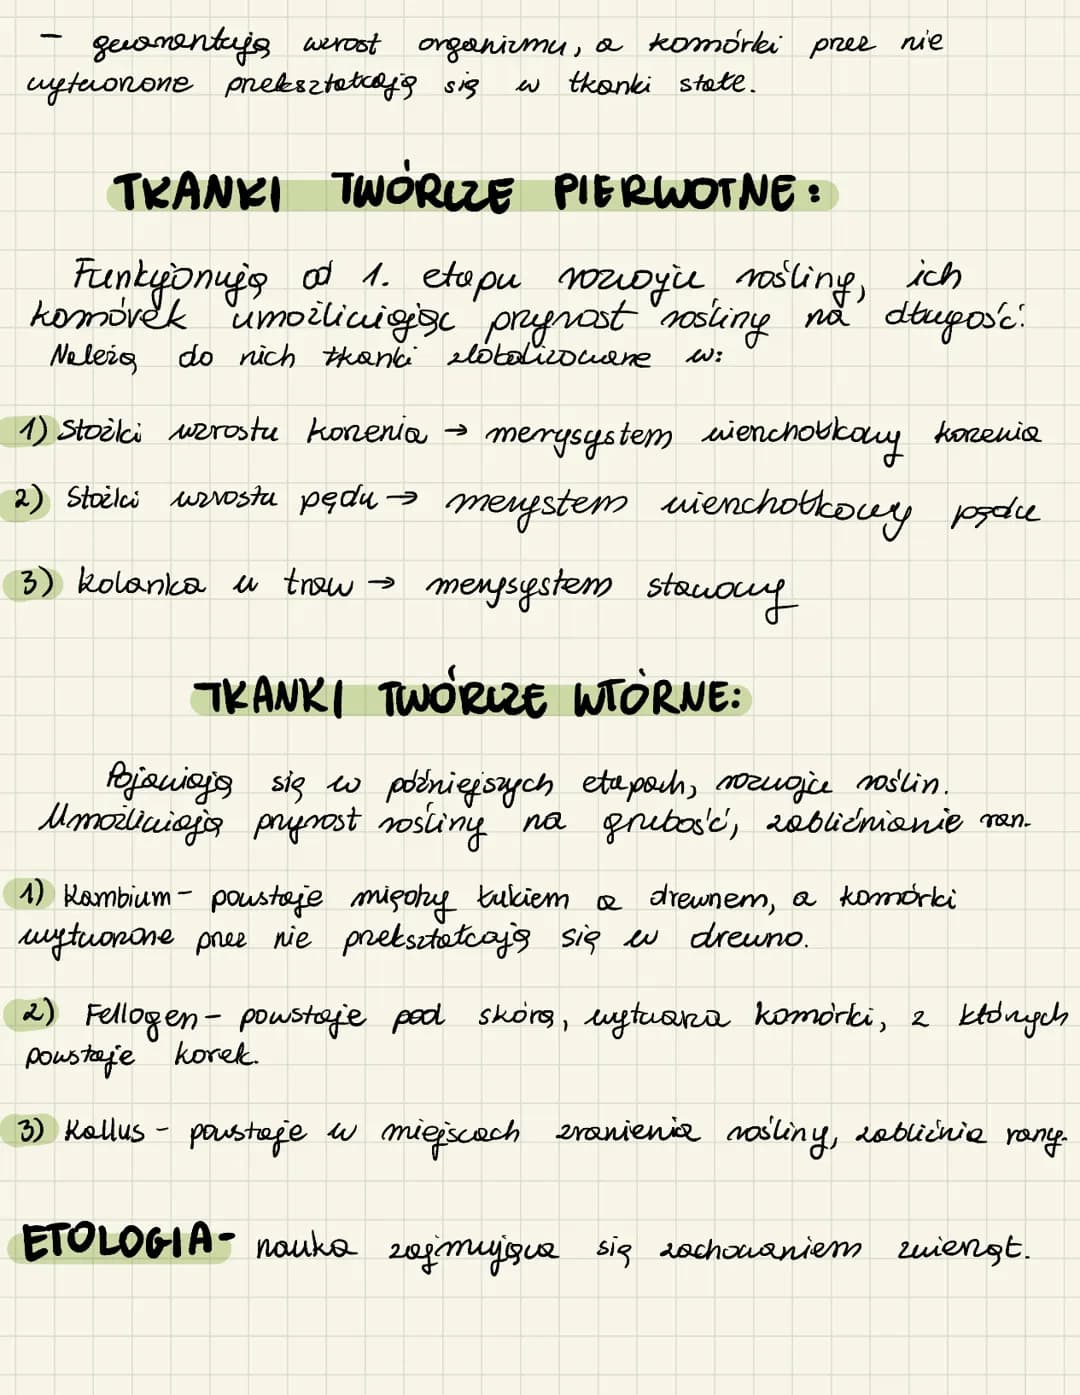 - gwarantują wzrost organizmu, a komórki przez nie
wytworzone przekształcają się w tkanki stałe.
TKANKI TWÓRCZE PIERWOTNE:
Funkcjonują od 1. etapu rozwoju rośliny, ich
komórek umożliwiając przyrost rośliny na długość.
Należą do nich tkanki zlokalizowane w:
1) Stożki wzrostu korzenia → merysystem wierzchołkowy korzenia
2) Stożki wzrostu pędu → merystem wierzchołkowy pędu
3) kolanka u traw → merysystem stawowy
TKANKI TWÓRCZE WTÓRNE:
Pojawiają się w późniejszych etapach, rozwoju roślin.
Umożliwiają przyrost rośliny na grubość, zabliźnianie ran.
1) Kambium - powstaje między łukiem a drewnem, a komórki
wytworzone przez nie przekształcają się w drewno.
2) Fellogen - powstaje pod skórą, wytwarza komórki, z których
powstaje korek.
3) Kallus - powstaje w miejscach zranienia rośliny, zabliźnia rany.
ETOLOGIA- nauka zajmująca się zachowaniem zwierząt.